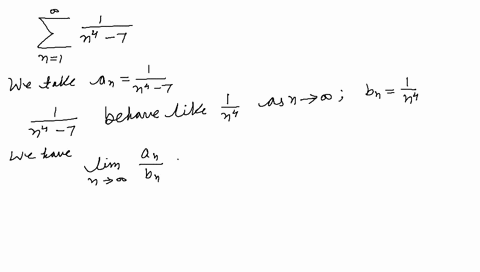 ∞
∑ 1/(n⁴ − 7)
n=1
We take aₙ = 1/(n⁴ − 7)
1/(n⁴ − 7) behave like 1/n⁴ as n → ∞ ; bₙ = 1/n⁴
We have lim n → ∞ aₙ/bₙ .